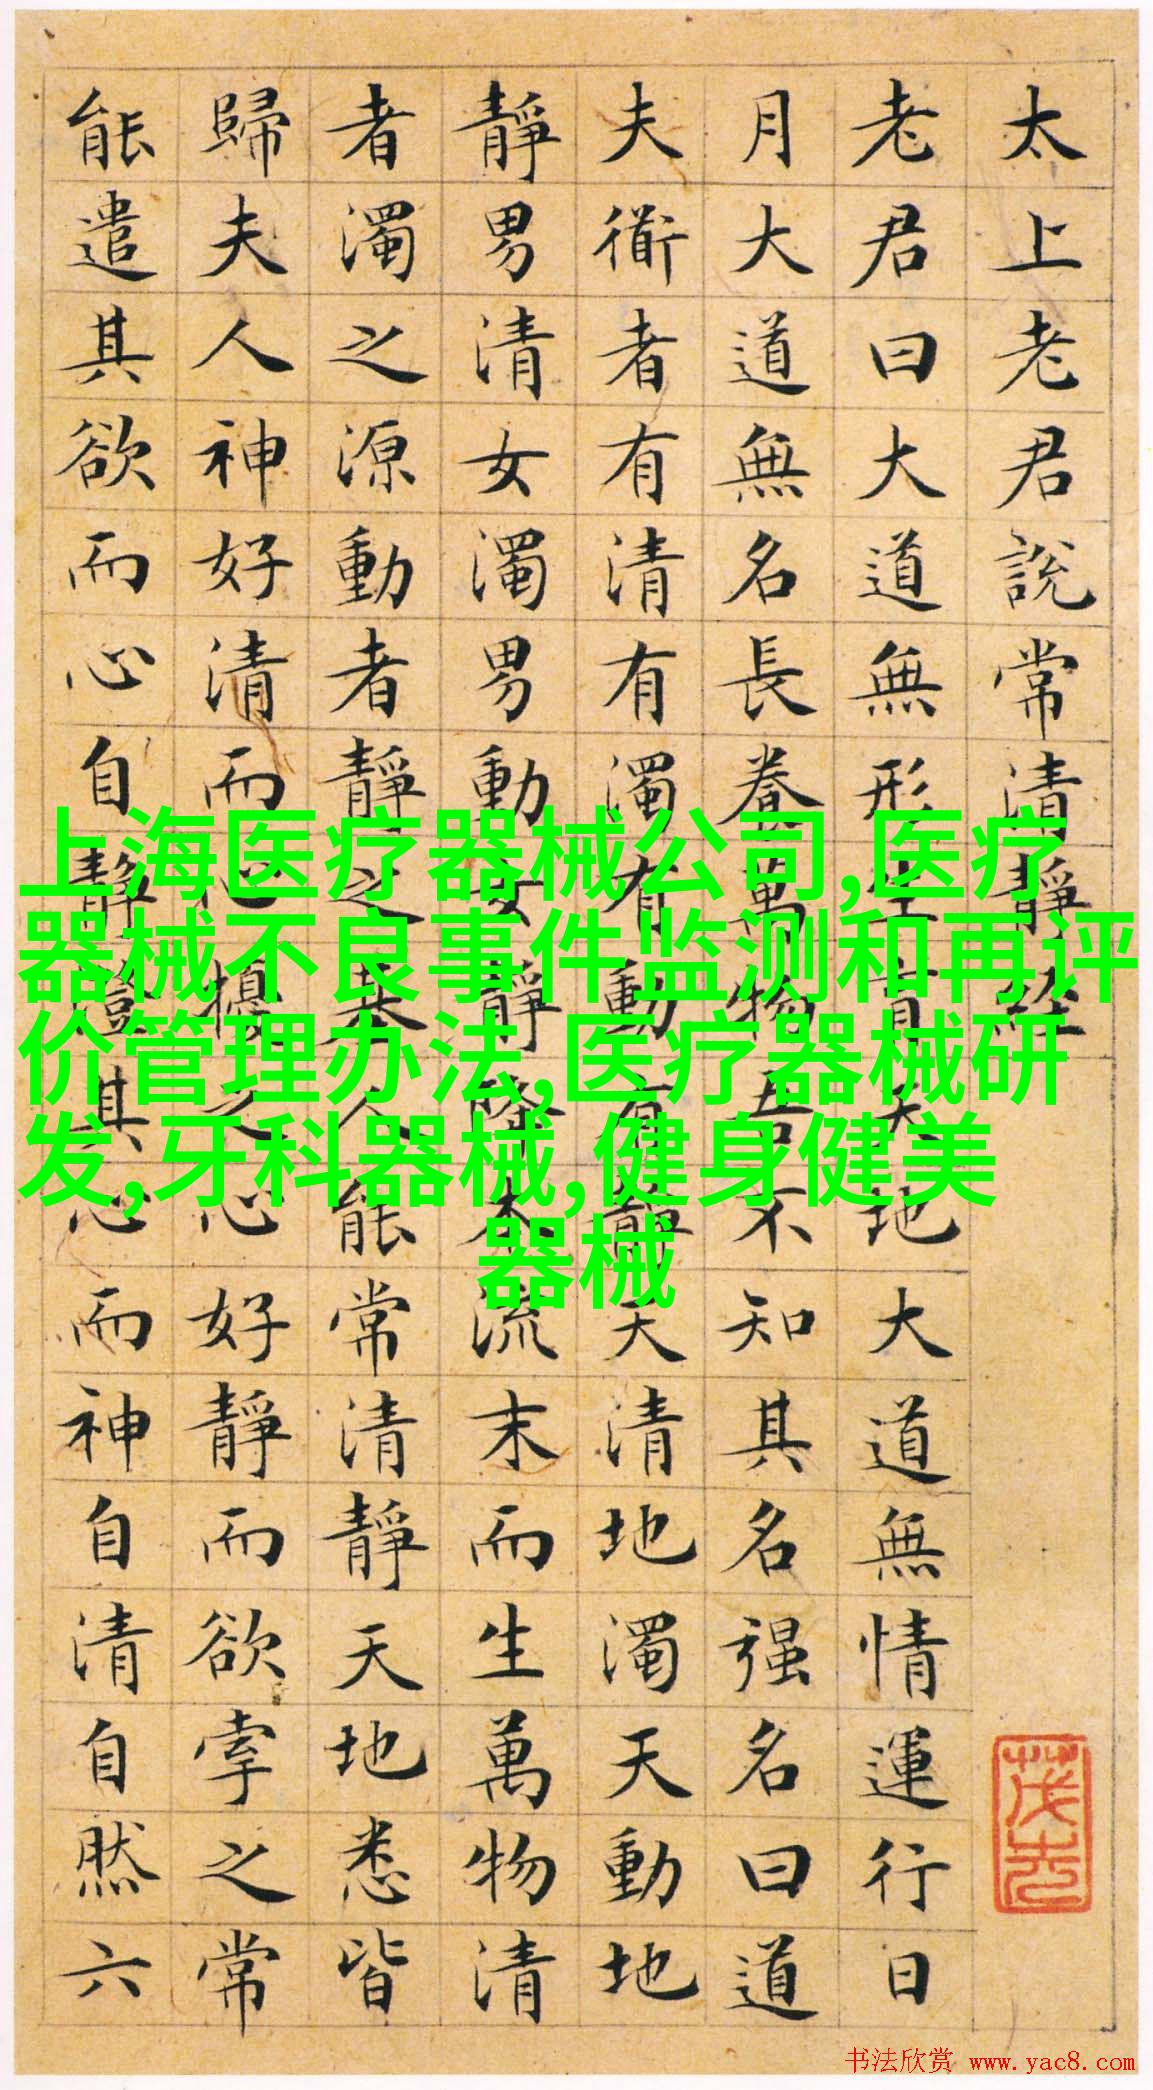 太上老君說常清靜經
老君曰大道無形生育天地大道無情運行日
月大道無名長養萬物吾不知其名强名曰道
夫衜者有清有濁有動有靜天清地濁天動地
靜男清女濁男動女靜降本流末而生萬物清
者濁之源動者靜之基人能常清靜天地悉皆
歸夫人神好清而心擾之心好靜而欲牽之常
能遣其欲而心自靜澄其心而神自清自然六
上海医疗器械公司,医疗
器械不良事件监测和再评
价管理办法,医疗器械研
发,牙科器械,健身健美
器械
书法欣赏 www.yac8.com